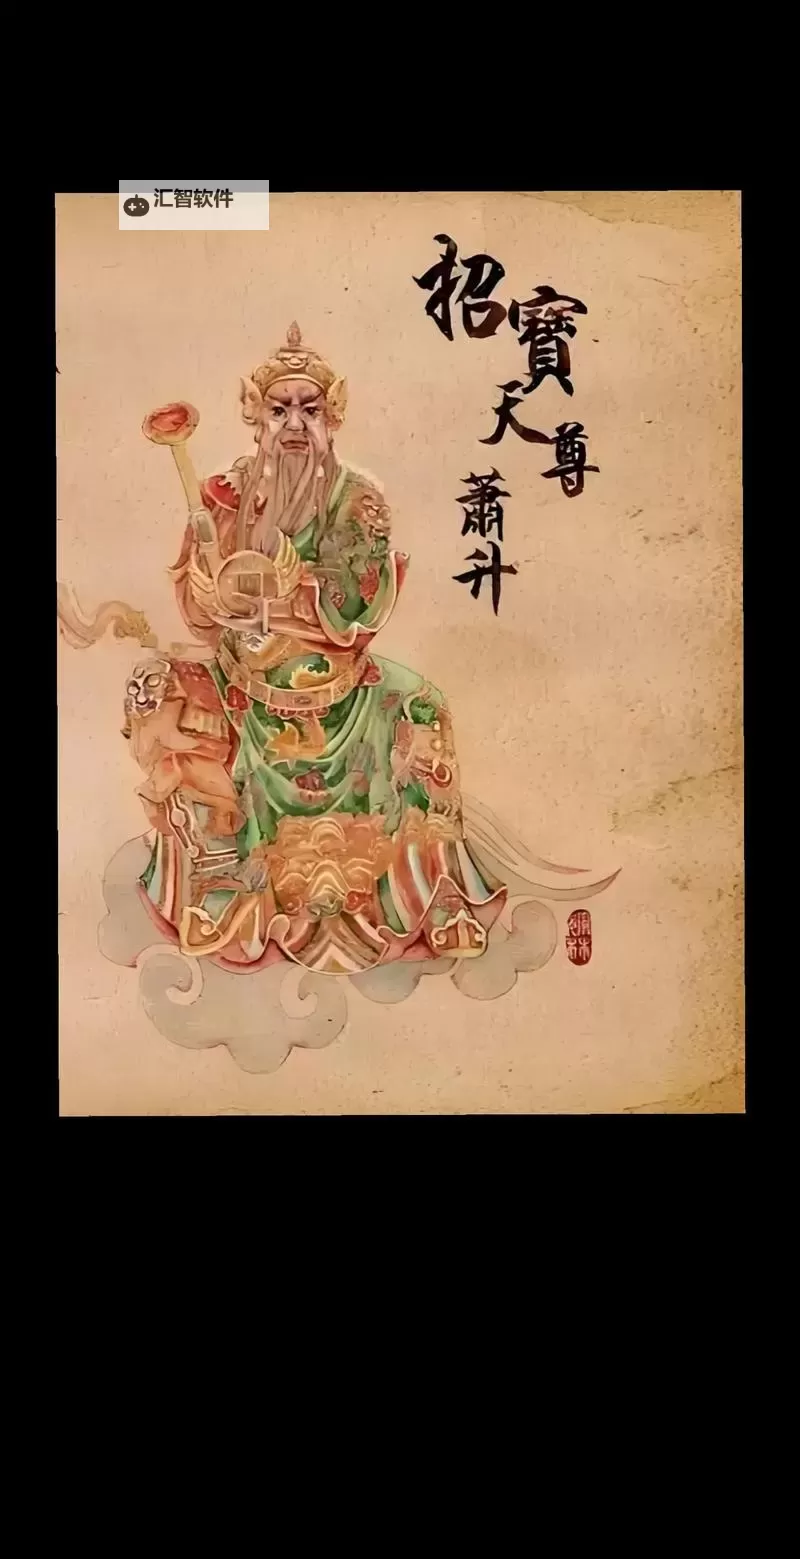 汇智软件
招寶
天尊
蕭升